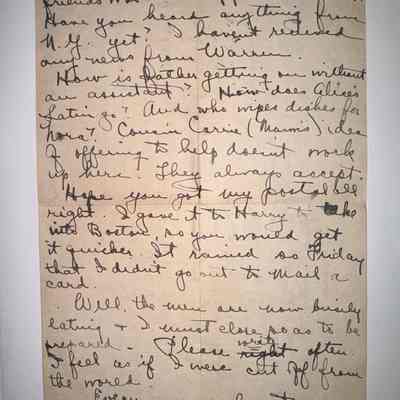 friends
Have you heard anything from
N.Y. yet? I haven't received
any news from Warren.
How is Father getting on without
an assistant? How does Alice's
Latin go? And who wipes dishes for
Nora? Cousin Carrie (Mamm's) idea
of offering to help doesnt work
up here. They always accept.
Hope you got my postal all
right. I gave it to Harry to take
into Boston, so you would get
it quicker. It rained so Friday
that I didn't go out to mail a
card.
Well, the men are now busily
eating + I must close so as to be
prepared - Please write often.
I feel as if I were cut off from
the world.